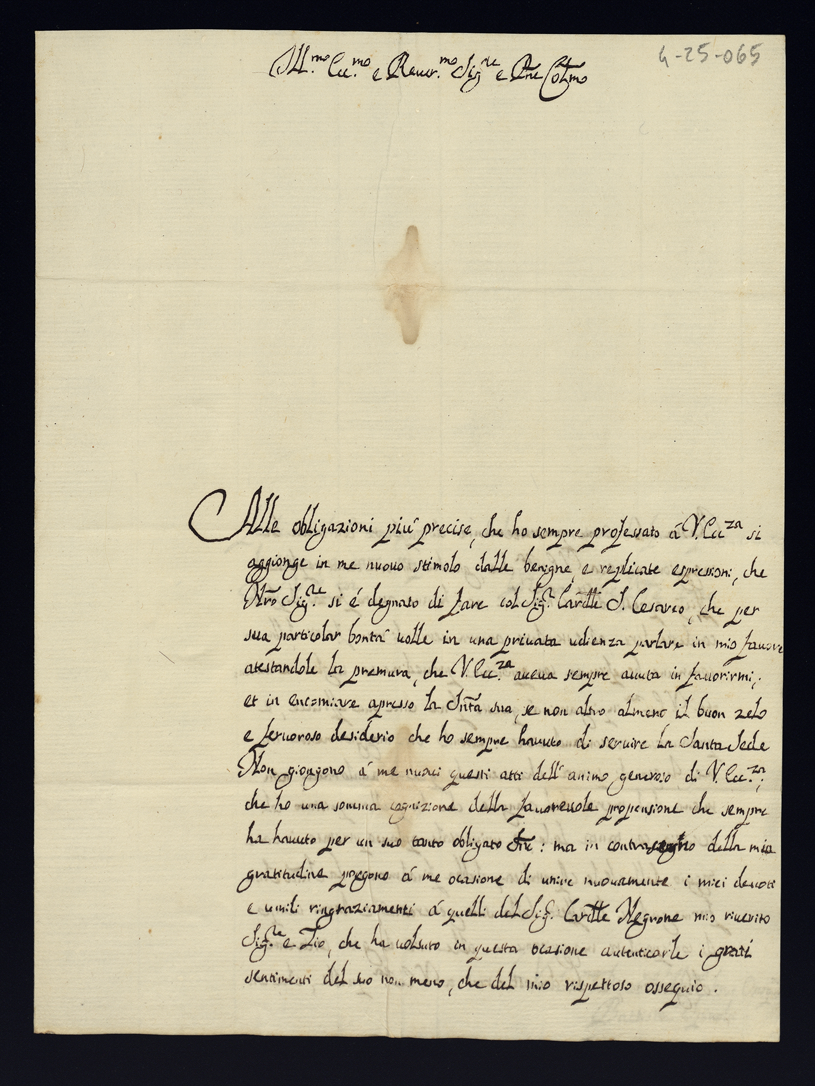 4-25-065
Ill.mo Ecc.mo e Rever.mo Sig.re e Pne Col.mo
Alle obligazioni piu' precise, che ho sempre professato á V. Ecc.za si
aggionge in me nuovo stimolo dalle benigne, e replicate espressioni, che
Nrõ Sig.re si é degnato di fare col Sig.r Cardle S. Cesareo, che per
sua particolar bontá volle in una privata udienza parlare in mio favore
atestandole la premura, che V. Ecc.za aveva sempre avuta in favorirmi;
et in encomiare apresso la Sntà sua, se non altro almeno il buon zelo
e fervoroso desiderio che ho sempre havuto di servire la Santa Sede
Non giongono á me nuovi questi atti dell' animo generoso di V. Ecc.za;
che ho una somma cognizione della favorevole propensione che sempre
ha havuto per un suo tanto obligato Sre: ma in contrasegno della mia
gratitudine porgono á me ocasione di unire nuovamente i miei devoti
e umili ringraziamenti á quelli del Sig.r Cardle Negrone mio riverito
Sig.re e Zio, che ha volsuto in questa ocasione autenticarle i grati
sentimenti del suo non meno, che del mio rispettoso ossequio.